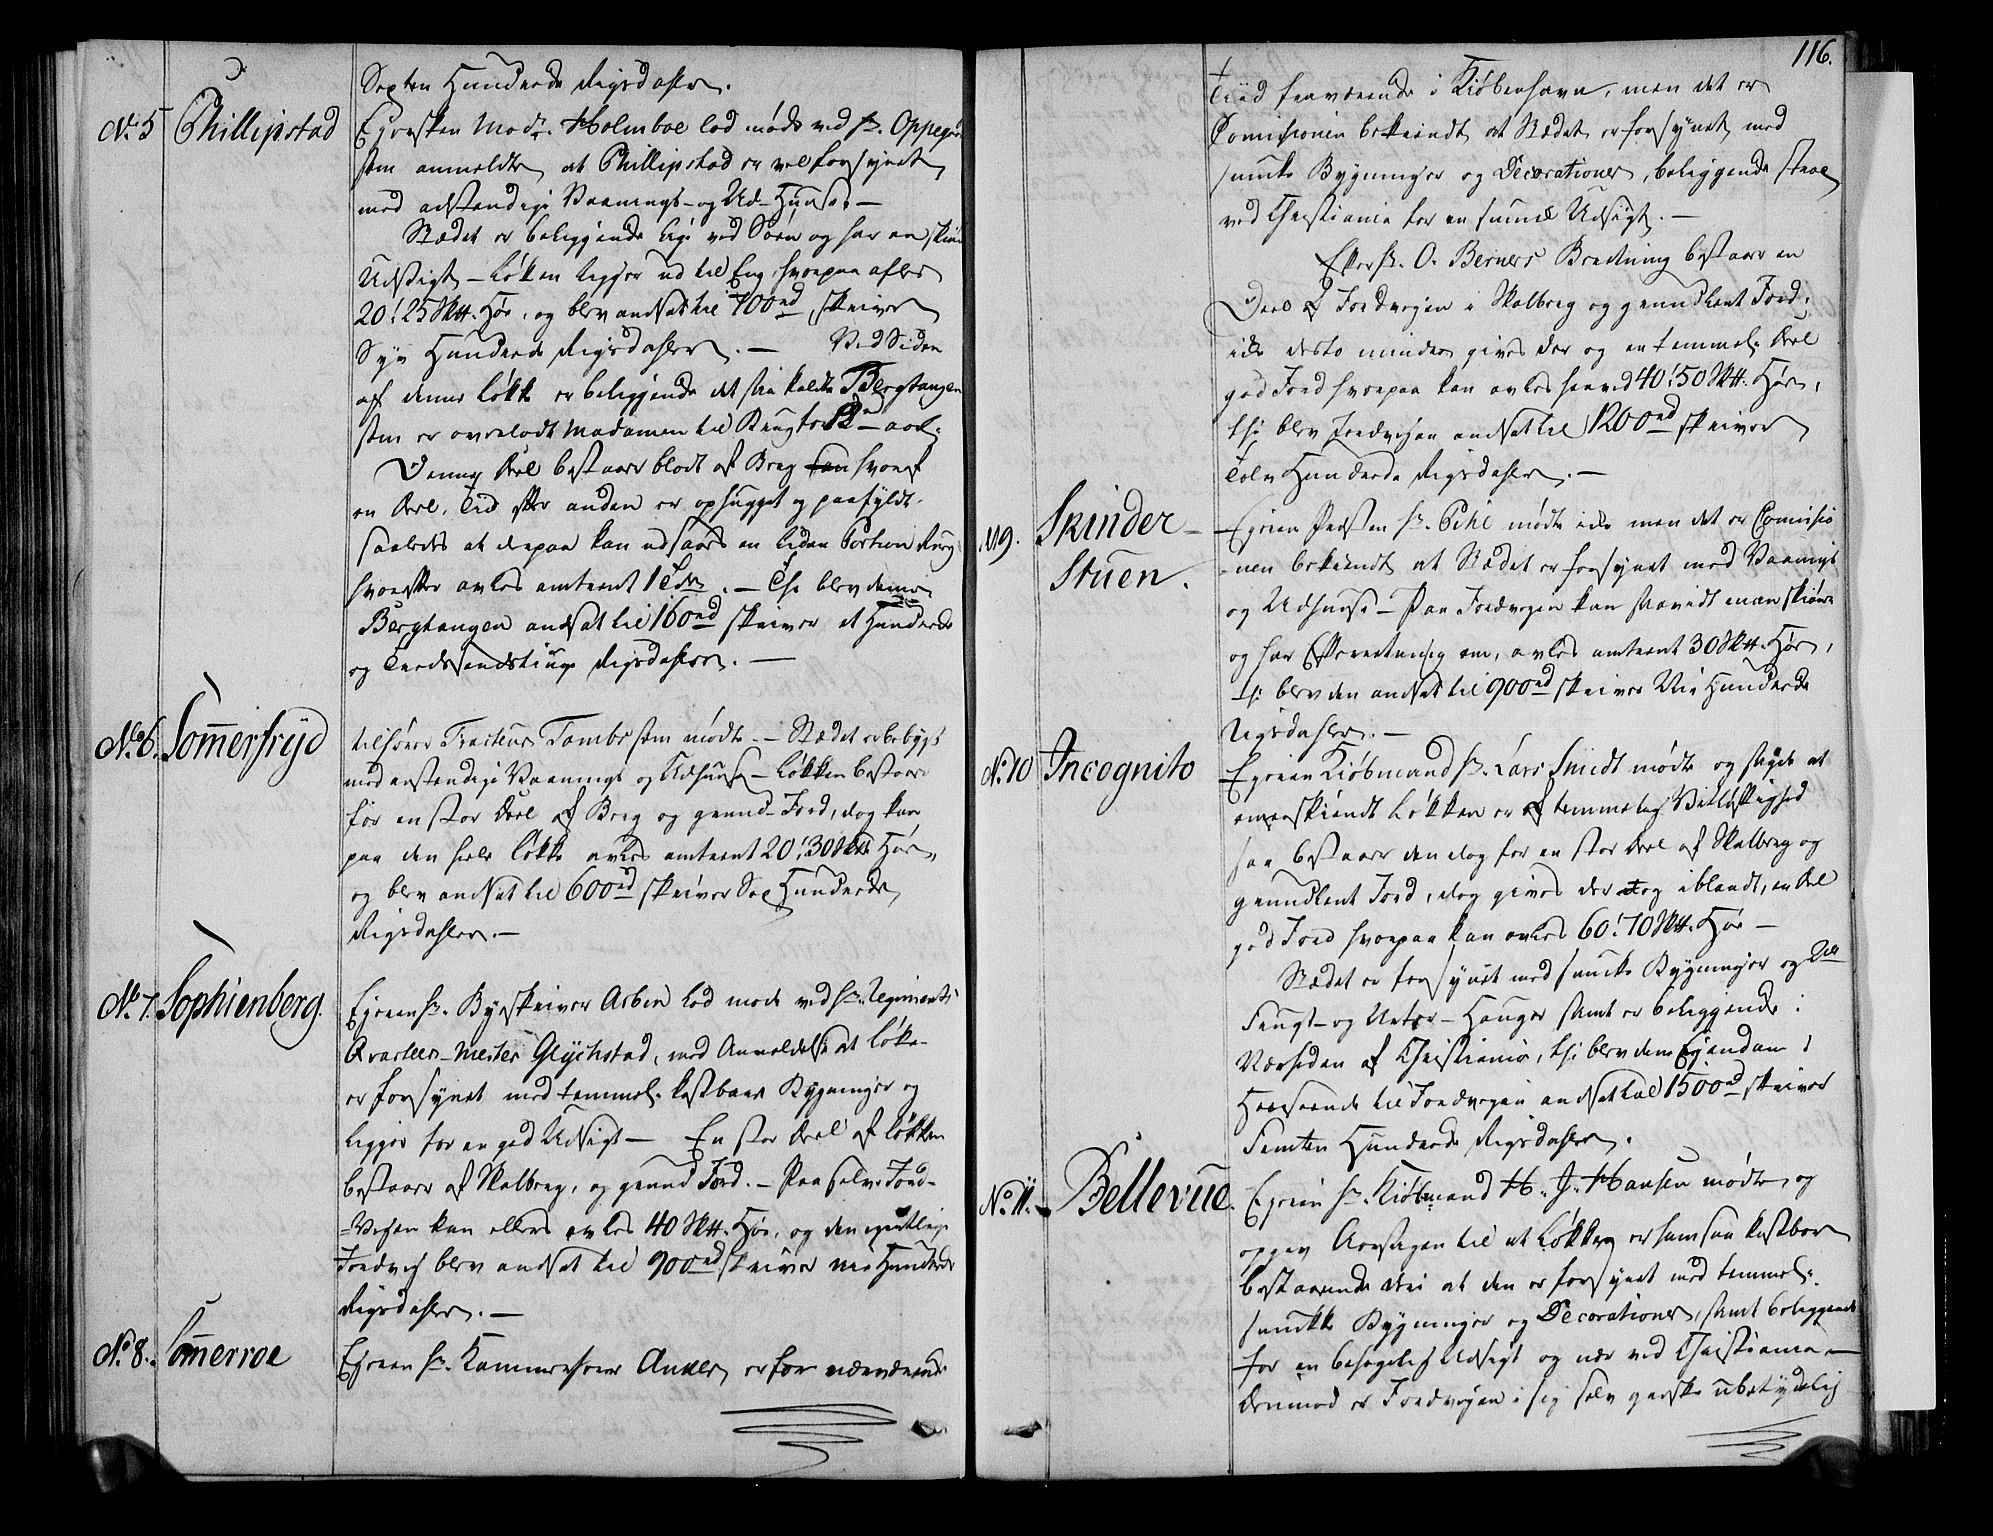 Sexten Hundrede Rigsdaler.
No 5 Phillipstad
Ejersken Madme. Holmboe lod møde ved Hr. Oppegaard
som anmeldte at Phillipstad er vel forsynet
med anstændige Vaanings- og Ud-Huuse. —
Stædet er beliggende lige ved Søen og har en skiøn
Udsigt — Løkken ligger ud til Eng, hvorpaa afles
20 ! 25 Skt. Høe, og blev andsat til 700 rd skriver
Syv Hundrede Rigsdaler. — Ved Siden
af denne Løkke er beliggende det saa kaldte Bergtangen
som er overladt Madamen til Brug for 12 rd aarl.
Denne Deel bestaaer blodt af Berg hvoraf
en Deel, Tid efter anden er ophugget og paafyldt
saaledes at derpaa kan udsaaes en liden Portion Rug
hvorefter avles omtrent 1 Tde. — Thi blev denne
Bergtangen andsat til 160 rd skriver et Hundrede
og Tredsindstiuge Rigsdaler. —
No 6. Sommerfryd
tilhører Tracteur Tambs som mødte. — Stædet er bebygt
med anstændige Vaanings og Udhuuse — Løkken bestaar
for en stor Deel af Berg og grund-Jord, dog kan
paa den hele Løkke avles omtrent 20 ! 30 Skt Høe,
og blev andsat til 600 rd skriver Sex Hundrede
Rigsdaler. —
No 7. Sophienberg.
Ejeren Hr. Byeskriver Arbin lod møde ved Hr. Regiments
Qvarteer-Mester Glychstad, med Anmeldelse at Løken
er forsynet med temmel. kostbare Bygninger og
ligger for en god Udsigt — En stor Deel af Løkken
bestaaer af Skalberg, og grund Jord. — Paa selve Jord-
-Vejen kan ellers avles 40 Skt. Høe, og den egentlige
Jordvej blev andsat til 900 rd skriver nie Hundrede
Rigsdaler. —
No 8. Sommerroe
Ejeren Hr. Kammerherre Anker er for nærværende
116.
Tiid fraværende i Kiøbenhavn, men det er
Comisionen bekiendt at Stædet er forsynet med
smucke Bygninger og Decorationer, beliggende strax
ved Christiania for en smuk Udsigt. —
Efter Hr. O. Berners Bretning bestaaer en
Deel af Jordvejen i Skalberg og grundlent Jord,
ikke desto minder gives der og en temmel. Deel
god Jord hvorpaa kan avles henved 40 ! 50 Skt. Høe,
thi blev Jordvejen andsat til 1200 rd skriver
Tolv Hundrede Rigsdaler. —
No 9. Skinder-
Stuen.
Ejeren Presten Hr. Pihl mødte ikke men det er Comisio
-nen bekiendt at Stædet er forsynet med Vaanings
og Udhuuse — Paa Jordvejen kan saavidt man skiønner
og har Efterretning om, avles omtrent 30 Skt. Høe,
thi blev den andsat til 900 rd skriver Nie Hundrede
Rigsdaler. —
No 10 Incognito
Ejeren Kiøbmand Hr. Lars Smidt mødte og sagde at
omenskiøndt Løkken er af temmelig Vidtløftighed
saa bestaaer den dog for en stor Deel af Skalberg og
grundlent Jord, dog gives der og iblandt, en Deel
god Jord hvorpaa kan avles 60 ! 70 Skt. Høe —
Stædet er forsynet med smucke Bygninger og
Frugt- og Urter-Hauger samt er beliggende i
Nærheden af Christiania, thi blev denne Ejendom i
Henseende til Jordvejen andsat til 1500 rd skriver
Femten Hundrede Rigsdaler.
No 11. Bellevue.
Ejeren Hr. Kiøbmand H. J. Hansen mødte og
opgav Aarsagen til at Løkken er ham saa kostbar
bestaaende deri at den er forsynet med temmel.
smukke Bygninger og Decorationer, samt beliggende
for en behagelig Udsigt og nær ved Christiania —
derimod er Jordvejen i sig selv ganske ubetydelig